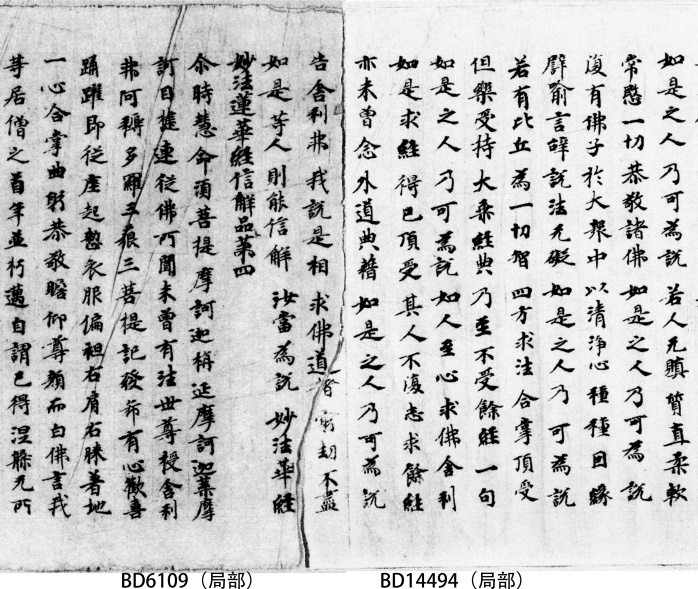 如是之人 乃可為說 若人无瞋 質直柔軟
常愍一切 恭敬諸佛 如是之人 乃可為說
復有佛子 於大衆中 以清淨心 種種因緣
譬喻言辝 說法无礙 如是之人 乃可為說
若有比丘 為一切智 四方求法 合掌頂受
但樂受持 大乘經典 乃至不受 餘經一句
如是之人 乃可為說 如人至心 求佛舍利
如是求經 得已頂受 其人不復 志求餘經
亦未曾念 外道典籍 如是之人 乃可為說
告舍利弗 我說是相 求佛道者 窮劫不盡
如是等人 則能信解 汝當為說 妙法華經
妙法蓮華經信解品第四
尒時慧命須菩提摩訶迦栴延摩訶迦葉摩
訶目揵連從佛所聞未曾有法世尊授舍利
弗阿耨多羅三藐三菩提記發希有心歡喜
踊躍即從座起整衣服偏袒右肩右膝著地
一心合掌曲躬恭敬瞻仰尊顏而白佛言我
等居僧之首年並朽邁自謂已得涅槃无所
BD6109（局部）
BD14494（局部）